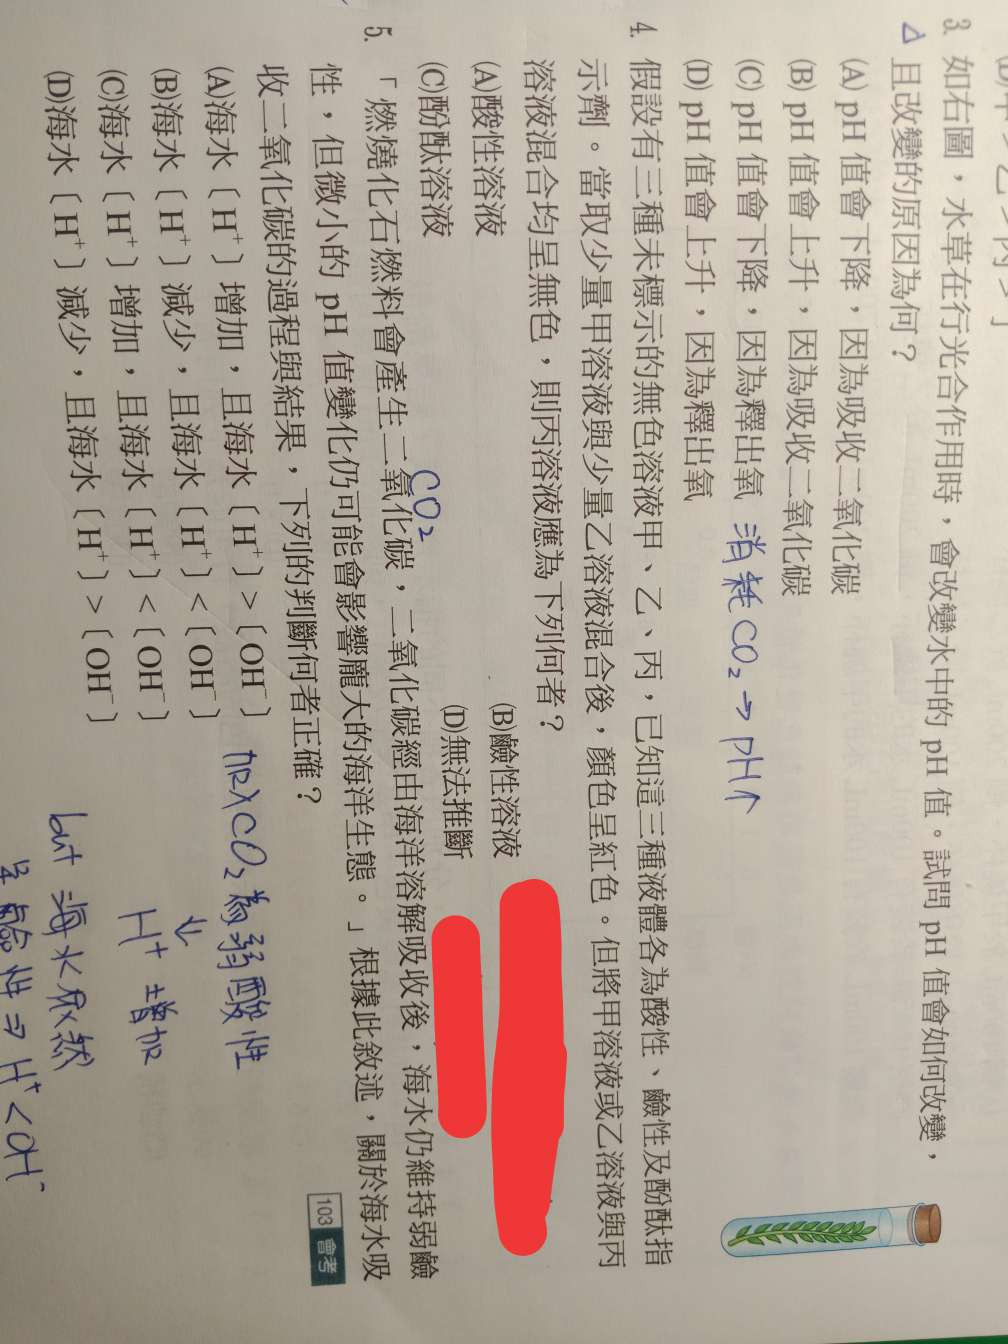 3. 如右圖，水草在行光合作用時，會改變水中的 pH 值。試問 pH 值會如何改變，
△ 且改變的原因為何？
(A) pH 值會下降，因為吸收二氧化碳
(B) pH 值會上升，因為吸收二氧化碳
(C) pH 值會下降，因為釋出氧
(D) pH 值會上升，因為釋出氧
消耗 CO₂ → pH↑
4. 假設有三種未標示的無色溶液甲、乙、丙，已知這三種液體各為酸性、鹼性及酚酞指
示劑。當取少量甲溶液與少量乙溶液混合後，顏色呈紅色。但將甲溶液或乙溶液與丙
溶液混合均呈無色，則丙溶液應為下列何者？
(A)酸性溶液 (B)鹼性溶液
(C)酚酞溶液 (D)無法推斷
CO₂
5. 「燃燒化石燃料會產生二氧化碳，二氧化碳經由海洋溶解吸收後，海水仍維持弱鹼
性，但微小的 pH 值變化仍可能會影響龐大的海洋生態。」根據此敘述，關於海水吸
收二氧化碳的過程與結果，下列的判斷何者正確？
103 會考
(A)海水〔H⁺〕增加，且海水〔H⁺〕>〔OH⁻〕
(B)海水〔H⁺〕減少，且海水〔H⁺〕<〔OH⁻〕
(C)海水〔H⁺〕增加，且海水〔H⁺〕<〔OH⁻〕
(D)海水〔H⁺〕減少，且海水〔H⁺〕>〔OH⁻〕
吸入CO₂為弱酸性
↓
H⁺ 增加
but 海水仍然
呈鹼性⇒ H⁺<OH⁻